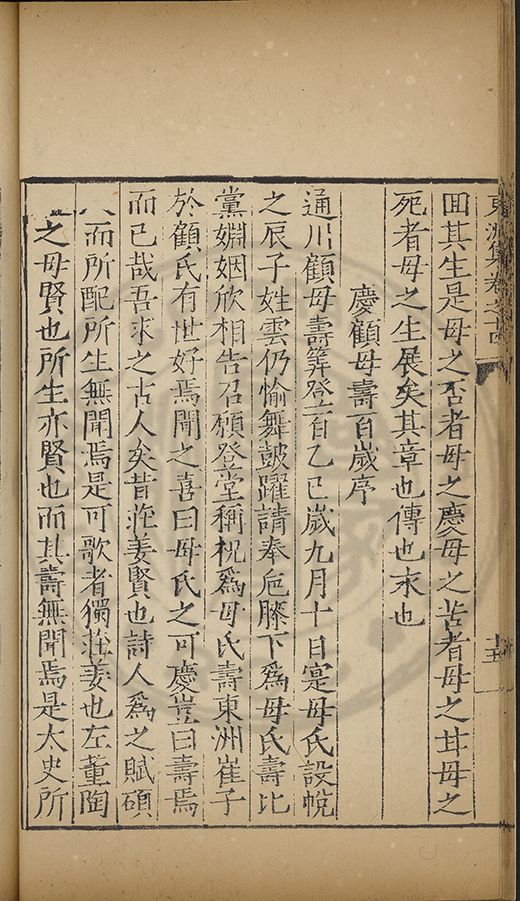 東洲集卷之十四
十五
固其生是母之否者母之慶母之苦者母之甘母之
死者母之生展矣其章也傳也求也
慶顧母壽百歲序
通川顧母壽筭登百乙巳歲九月十日寔母氏設帨
之辰子姓雲仍愉舞鼓躍請奉巵膝下爲母氏壽比
黨婣姻欣相告召願登堂稱祝爲母氏壽東洲崔子
於顧氏有世好焉聞之喜曰母氏之可慶豈曰壽焉
而已哉吾求之古人矣昔莊姜賢也詩人爲之賦碩
人而所配所生無聞焉是可歌者獨莊姜也左董陶
之母賢也所生亦賢也而其壽無聞焉是太史所